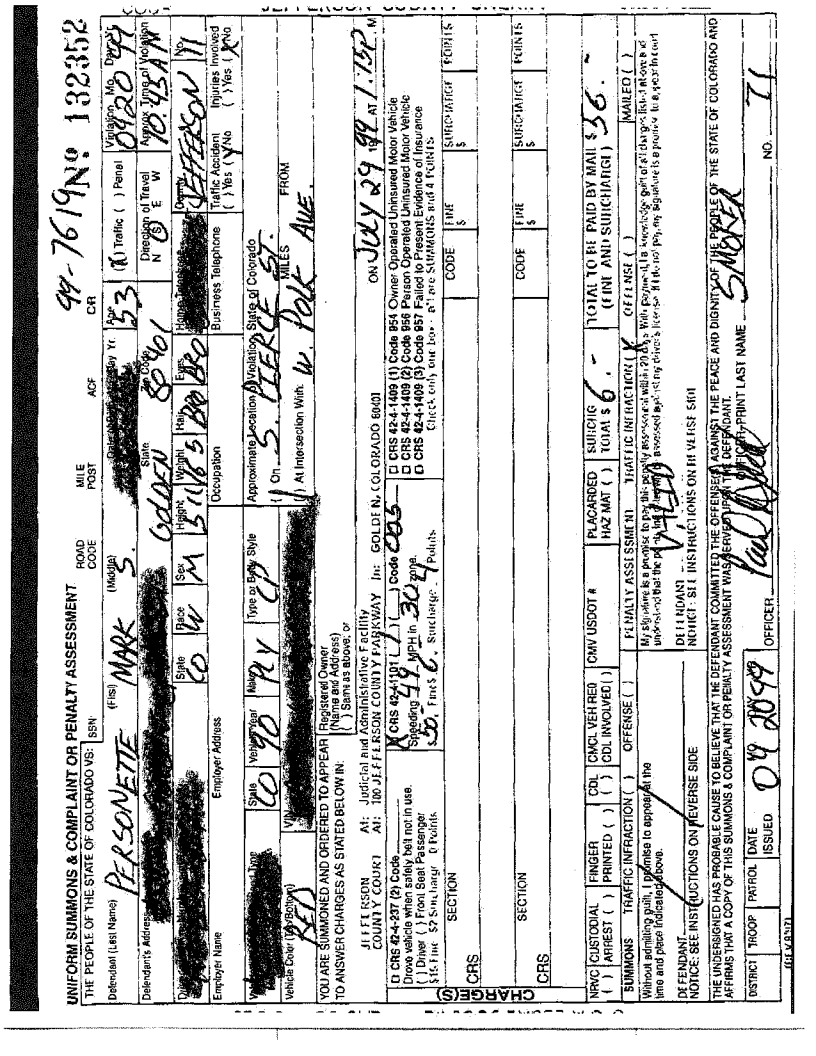 99-7619 Nº 132352
UNIFORM SUMMONS & COMPLAINT OR PENALTY ASSESSMENT
THE PEOPLE OF THE STATE OF COLORADO VS: SSN:
ROAD CODE MILE POST ACF CR
Defendant (Last Name) PERSONETTE (First) MARK (Middle) S. Age 53 (X) Traffic ( ) Penal Violation Mo. Day Yr. 0420 99
Defendant's Address GOLDEN State Zip Code 80401 Direction of Travel N S E W Approx Time of Violation 10:45 AM
State CO Race W Sex M Height 511 Weight 165 Hair BRO Eyes BRO County JEFFERSON No. 11
Employer Name Employer Address Occupation Business Telephone Traffic Accident ( ) Yes (X) No Injuries Involved ( ) Yes (X) No
State CO Vehicle Year 90 Make PLY Type or Body Style CP Approximate Location of Violation, State of Colorado
On S. PIERCE ST.
Vehicle Color (Top/Bottom) RED VIN At Intersection With: W. POLK AVE. MILES FROM
YOU ARE SUMMONED AND ORDERED TO APPEAR TO ANSWER CHARGES AS STATED BELOW IN:
Registered Owner (Name and Address)
( ) Same as above, or
JEFFERSON COUNTY COURT At: Judicial and Administrative Facility
At: 100 JEFFERSON COUNTY PARKWAY In: GOLDEN, COLORADO 80401 ON JULY 29 1999 AT 1:15P M
CHARGE(S)
CRS 42-4-237 (2) Code
Drove vehicle when safety belt not in use.
( ) Driver ( ) Front Seat Passenger
$15 Fine $2 Surcharge 0 Points
X CRS 42-4-1101 (1) ( ) Code 005
Speeding 49 MPH in 30 zone.
$50. Fine $6. Surcharge 4 Points
CRS 42-4-1409 (1) Code 954 Owner Operated Uninsured Motor Vehicle
CRS 42-4-1409 (2) Code 956 Person Operated Uninsured Motor Vehicle
CRS 42-4-1409 (3) Code 957 Failed to Present Evidence of Insurance
Check only one box - all are SUMMONS and 4 POINTS
CRS SECTION CODE FINE $ SURCHARGE $ POINTS
CRS SECTION CODE FINE $ SURCHARGE $ POINTS
NRVC ( ) CUSTODIAL ARREST ( ) FINGER PRINTED ( ) CDL ( ) CMCL VEH REQ CDL INVOLVED ( ) CMV USDOT # PLACARDED HAZ MAT ( ) SURCHG TOTAL $ 6.- TOTAL TO BE PAID BY MAIL (FINE AND SURCHARGE) $ 56.-
SUMMONS TRAFFIC INFRACTION ( ) OFFENSE ( ) PENALTY ASSESSMENT TRAFFIC INFRACTION (X) OFFENSE ( ) MAILED ( )
Without admitting guilt, I promise to appear at the time and place indicated above.
DEFENDANT
NOTICE: SEE INSTRUCTIONS ON REVERSE SIDE
My signature is a promise to pay this penalty assessment within 20 days. With payment, I acknowledge guilt of all charges listed above and
DEFENDANT
NOTICE: SEE INSTRUCTIONS ON REVERSE SIDE
THE UNDERSIGNED HAS PROBABLE CAUSE TO BELIEVE THAT THE DEFENDANT COMMITTED THE OFFENSE(S) AGAINST THE PEACE AND DIGNITY OF THE PEOPLE OF THE STATE OF COLORADO AND
AFFIRMS THAT A COPY OF THIS SUMMONS & COMPLAINT OR PENALTY ASSESSMENT WAS SERVED UPON THE DEFENDANT.
DISTRICT TROOP PATROL DATE ISSUED 04 20 99 OFFICER OFFICER-PRINT LAST NAME SMOKER NO. 71